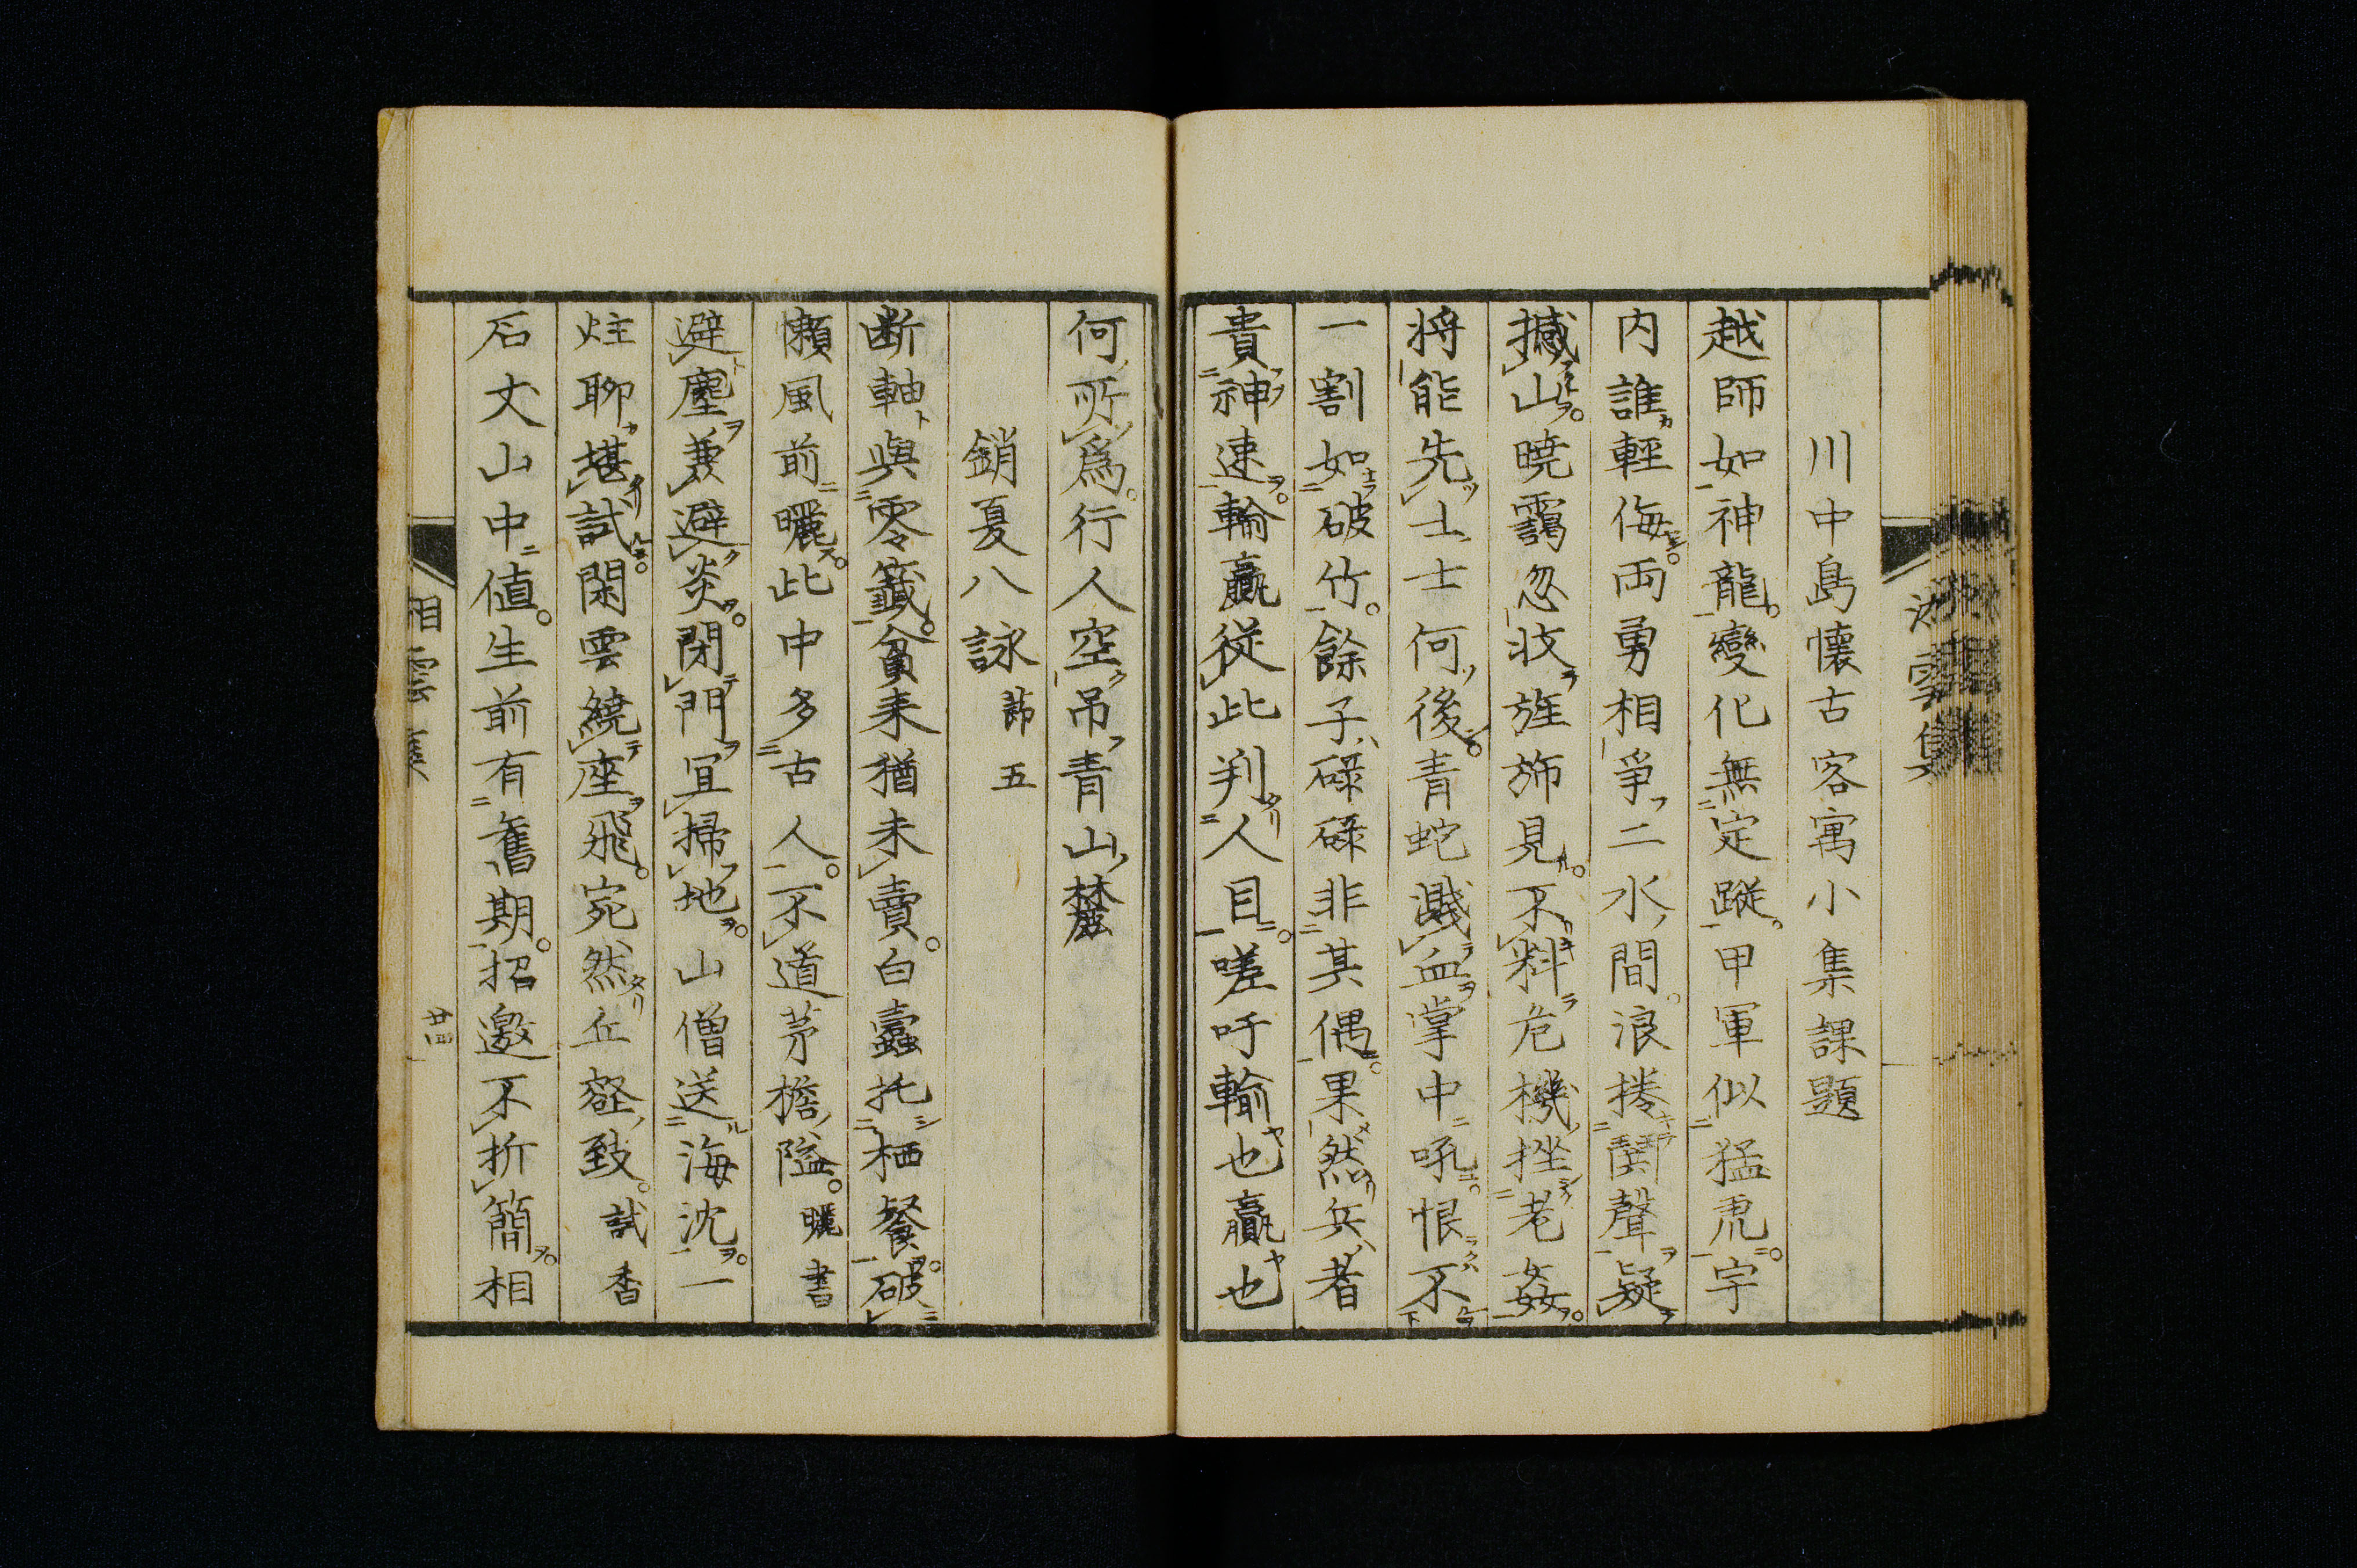 川中島懐古客寓小集課題
越師如神龍變化無定蹤甲軍似猛乕宇
内誰輕侮両勇相爭二水間浪捲鬨聲疑
撼山暁靄忽收旌旆見不料危機挫老姦
将能先士士何後青蛇濺血掌中吼恨不
一割如破竹餘子碌碌非其偶果然兵者
貴神速輸贏従此判人目嗟吁輸也贏也
何所爲行人空吊青山麓
銷夏八詠 節五
断軸與零籤貧来猶未賣白蠧托栖餐破
懶風前曬此中多古人不道茅檐隘 曬書
避塵兼避炎閉門宜掃地山僧送海沈一
炷聊堪試閑雲繞座飛宛然丘壑致 試香
石丈山中値生前有舊期招邀不折簡相
廿四